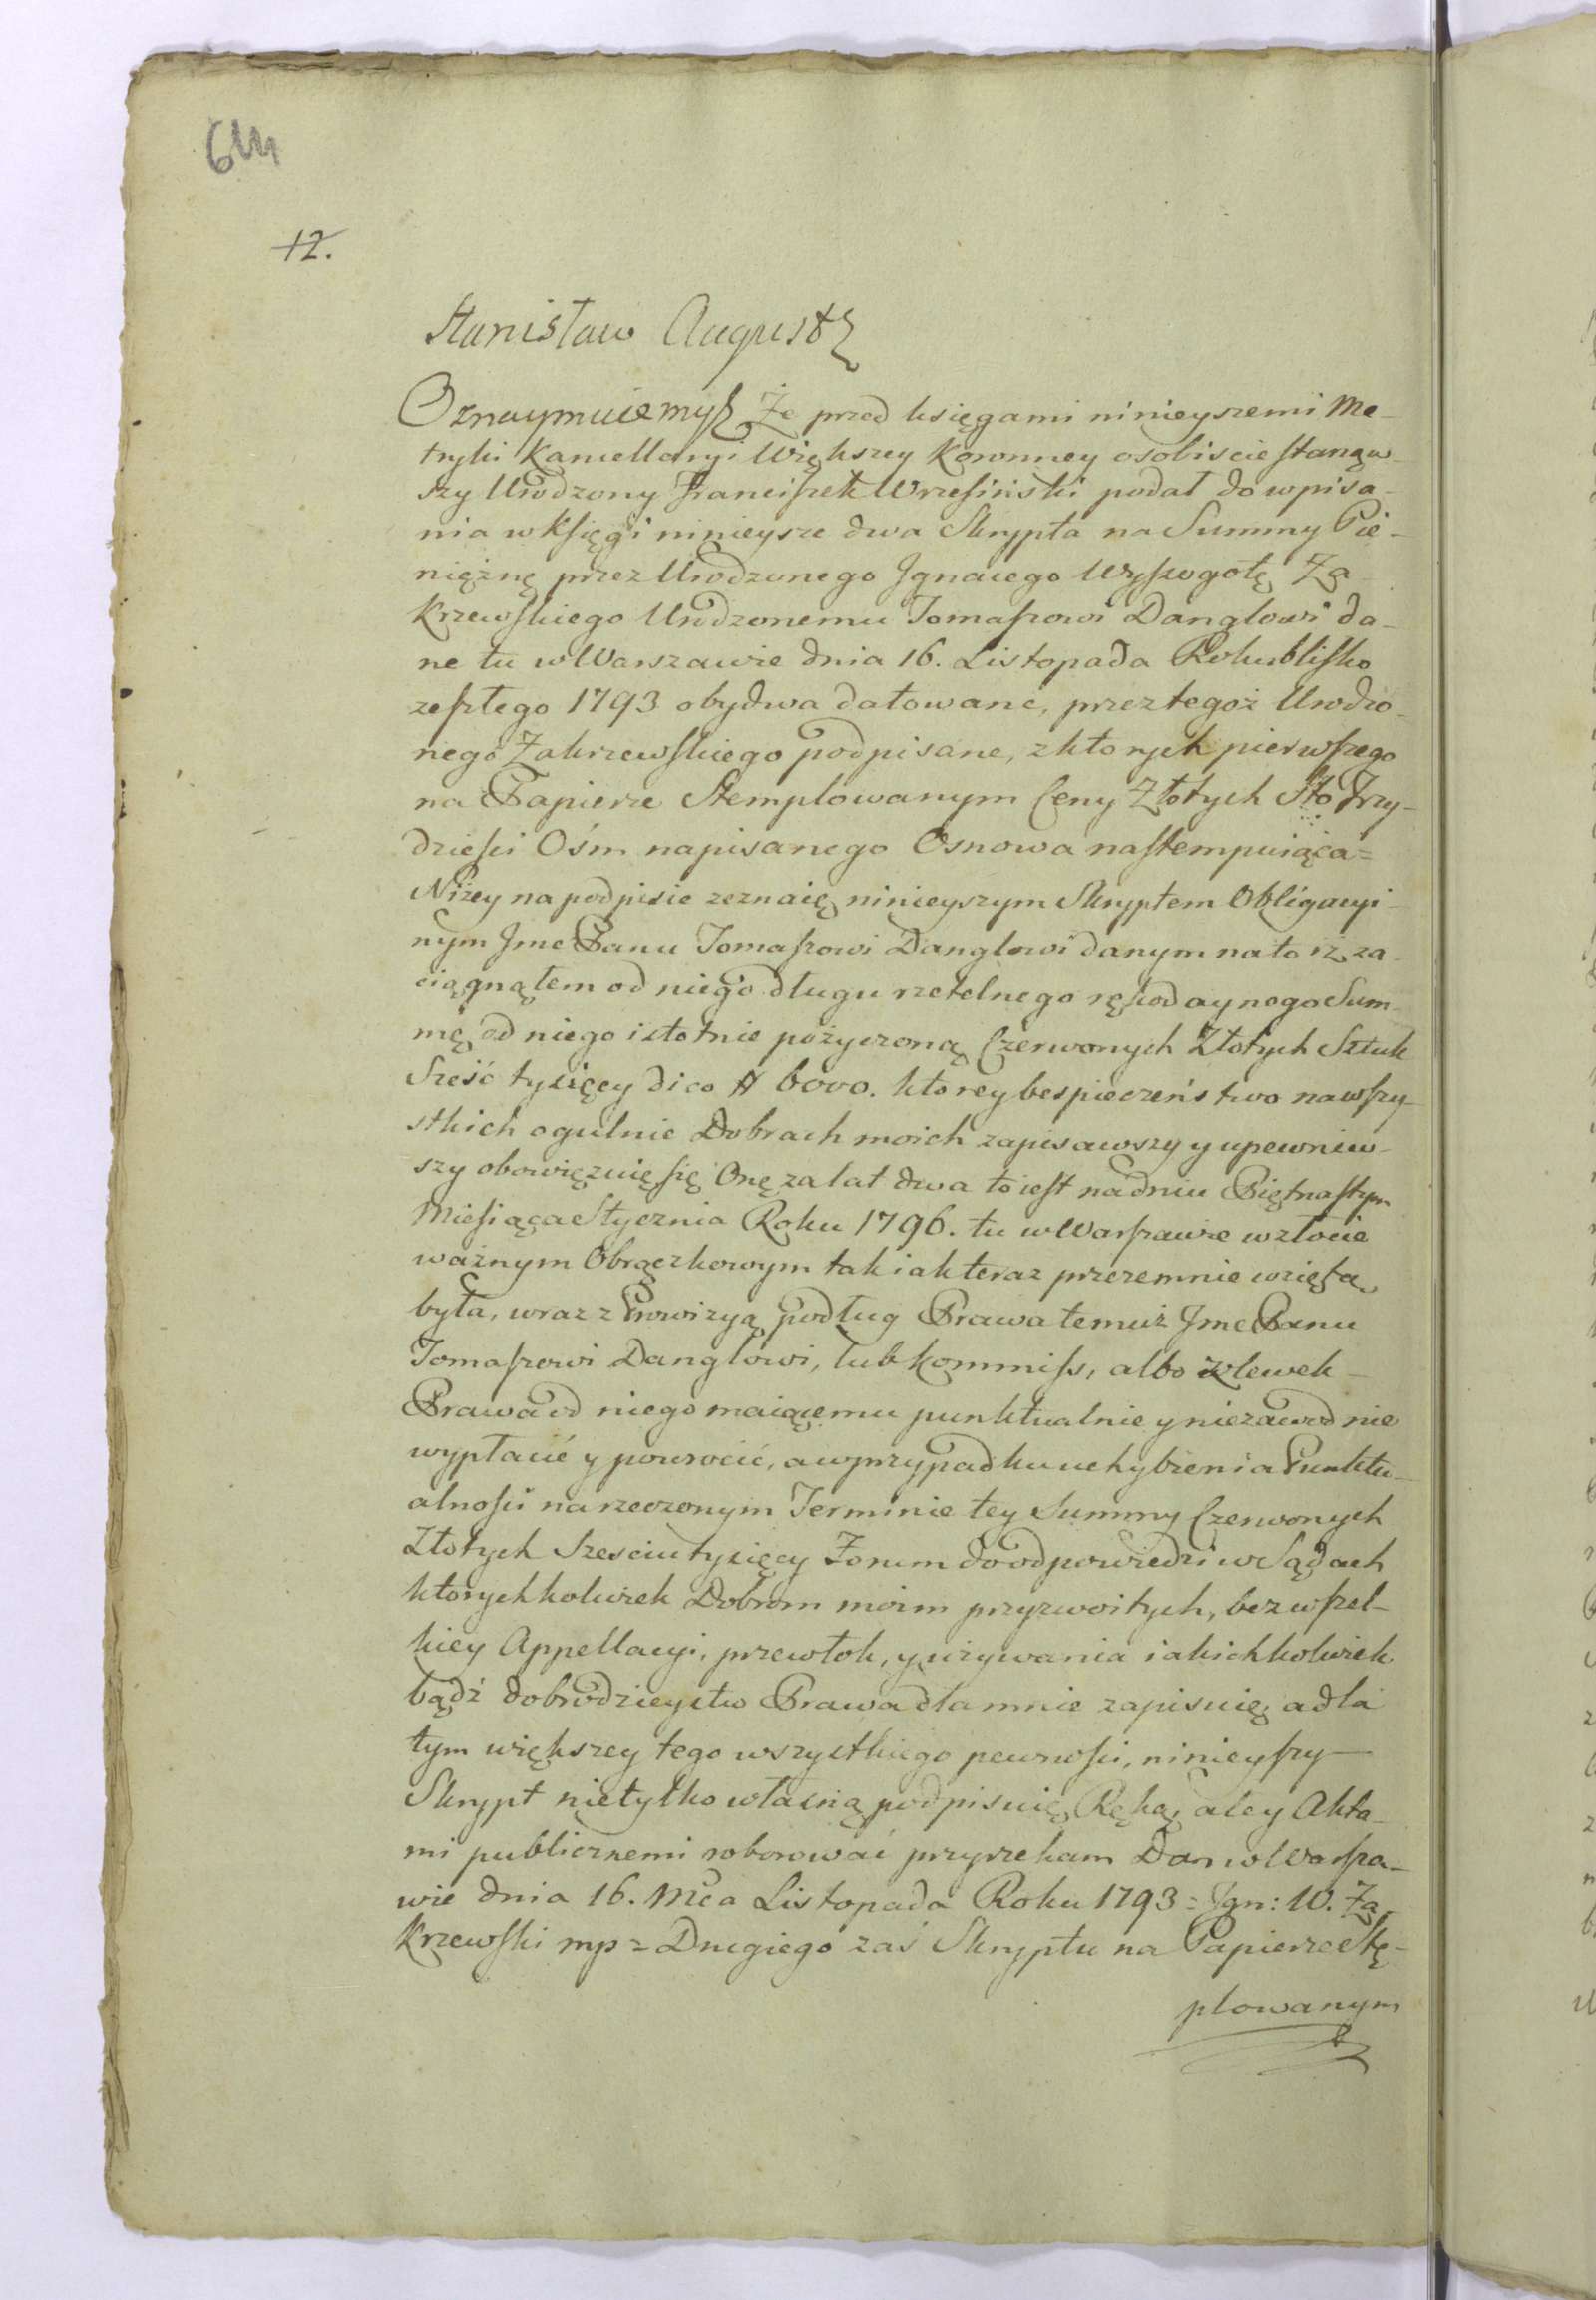 644
12.
Stanisław August
Oznaymuiemy Że przed księgami ninieyszemi Me-
tryki Kancellaryi Większey Koronney osobiscie stanąw-
szy Urodzony Franciszek Wrzesiński podał do wpisa-
nia w Księgi ninieysze dwa Skrypta na Summy Pie-
niężnę przez Urodzonego Jgnacego Wyszogotę Za-
krzewskiego Urodzonemu Tomaszowi Danglowi da-
ne tu w Warszawie dnia 16. Listopada Roku blisko
zeszłego 1793 obydwa datowane, przez tegoż Urodzo-
nego Zakrzewskiego podpisane, z ktorych pierwszego
na Papierze Stemplowanym Ceny Złotych Sto Trzy-
dzieści Ośm napisanego Osnowa nastempuiąca=
Niżey na podpisie zeznaię ninieyszym Skryptem Obligacyi-
nym Jmc Panu Tomaszowi Danglowi danym na to iż za-
ciągnąłem od niego długu rzetelnego rękodaynego Sum-
mę od niego istotnie pożyczoną Czerwonych Złotych Sztuk
Sześć tysięcy dico # 6000. ktorey bespieczeństwo na wszy-
stkich ogulnie Dobrach moich zapisawszy y upewniw-
szy obowięzuię się Onę za lat dwa to iest na dniu Piętnastym
Miesiąca Stycznia Roku 1796. tu w Warszawie w złocie
ważnym Obrączkowym tak iak teraz przezemnie wzięta
była, wraz z Prowizyą podług Prawa temuż Jmc Panu
Tomaszowi Danglowi, lub kommiss, albo zlewek-
Prawa od niego maiącemu punktualnie y niezawodnie
wypłacić y powrocić, a w przypadku uchybienia Punktu-
alności na rzeczonym Terminie tey Summy Czerwonych
Złotych Sześciu tysięcy Forum do odpowiedzi w Sądach
ktorychkolwiek Dobrom moim przyzwoitych, bez wszel-
kiey Appellacyi, przewłok, y używania iakichkolwiek
bądź dobrodzieystw Prawa dla mnie zapisuię, a dla
tym większey tego wszystkiego pewności, ninieyszy-
Skrypt nietylko własną podpisuię Ręką, ale y Akta-
mi publicznemi roborować przyrzekam Dan w Warsza-
wie dnia 16. Mca Listopada Roku 1793 = Jgn: W. Za-
krzewski mp = Drugiego zaś Skryptu na Papierze Stę-
plowanym